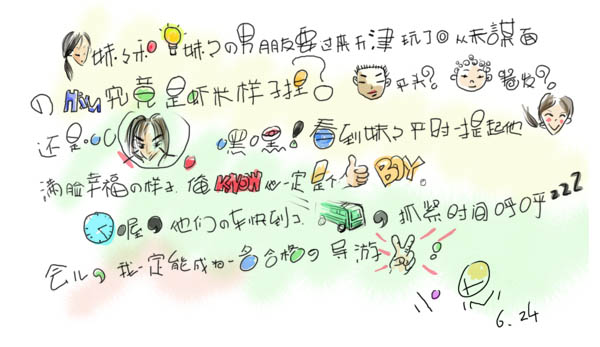 妹々和妹々の男朋友要过来天津玩了。从未謀面
の Hsu 究竟是啥米样子捏？平头？卷发？
还是。。。嘿。嘿！看到妹々平时一提起他
满脸幸福の样子. 俺 KNOW 他一定是个 BOY.
喔，他们の车快到了，抓紧时间呼呼zzz
会儿，我一定能成为一名合格の导游！
6.24